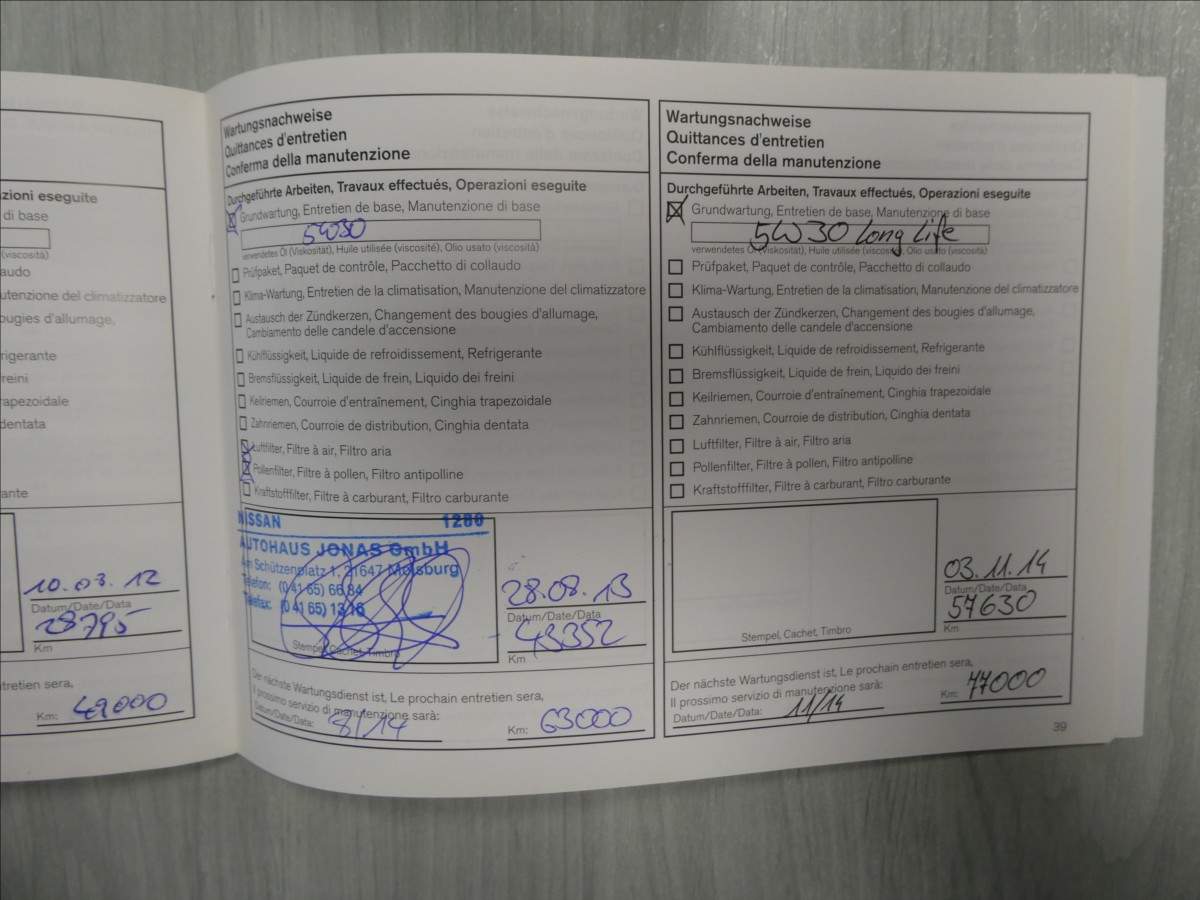 zioni eseguite
di base
(viscosità)
laudo
utenzione del climatizzatore
ougies d'allumage,
rigerante
freini
rapezoidale
dentata
ante
10.03.12
Datum/Date/Data
28795
Km
ntretien sera,
Km: 49000
Wartungsnachweise
Quittances d'entretien
Conferma della manutenzione
Durchgeführte Arbeiten, Travaux effectués, Operazioni eseguite
Grundwartung, Entretien de base, Manutenzione di base
5W30
verwendetes Öl (Viskosität), Huile utilisée (viscosité), Olio usato (viscosità)
Prüfpaket, Paquet de contrôle, Pacchetto di collaudo
Klima-Wartung, Entretien de la climatisation, Manutenzione del climatizzatore
Austausch der Zündkerzen, Changement des bougies d'allumage,
Cambiamento delle candele d'accensione
Kühlflüssigkeit, Liquide de refroidissement, Refrigerante
Bremsflüssigkeit, Liquide de frein, Liquido dei freini
Keilriemen, Courroie d'entraînement, Cinghia trapezoidale
Zahnriemen, Courroie de distribution, Cinghia dentata
Luftfilter, Filtre à air, Filtro aria
Pollenfilter, Filtre à pollen, Filtro antipolline
Kraftstofffilter, Filtre à carburant, Filtro carburante
NISSAN 1280
AUTOHAUS JONAS GmbH
Am Schützenplatz 1, 21647 Moisburg
Telefon: (0 41 65) 66 84
Telefax: (0 41 65) 13 16
Stempel, Cachet, Timbro
28.08.13
Datum/Date/Data
43352
Km
Der nächste Wartungsdienst ist, Le prochain entretien sera,
Il prossimo servizio di manutenzione sarà:
Datum/Date/Data: 8/14
Km: 63000
Wartungsnachweise
Quittances d'entretien
Conferma della manutenzione
Durchgeführte Arbeiten, Travaux effectués, Operazioni eseguite
Grundwartung, Entretien de base, Manutenzione di base
5W30 Long Life
verwendetes Öl (Viskosität), Huile utilisée (viscosité), Olio usato (viscosità)
Prüfpaket, Paquet de contrôle, Pacchetto di collaudo
Klima-Wartung, Entretien de la climatisation, Manutenzione del climatizzatore
Austausch der Zündkerzen, Changement des bougies d'allumage,
Cambiamento delle candele d'accensione
Kühlflüssigkeit, Liquide de refroidissement, Refrigerante
Bremsflüssigkeit, Liquide de frein, Liquido dei freini
Keilriemen, Courroie d'entraînement, Cinghia trapezoidale
Zahnriemen, Courroie de distribution, Cinghia dentata
Luftfilter, Filtre à air, Filtro aria
Pollenfilter, Filtre à pollen, Filtro antipolline
Kraftstofffilter, Filtre à carburant, Filtro carburante
Stempel, Cachet, Timbro
03.11.14
Datum/Date/Data
57630
Km
Der nächste Wartungsdienst ist, Le prochain entretien sera,
Il prossimo servizio di manutenzione sarà:
Datum/Date/Data: 11/14
Km: 77000
39